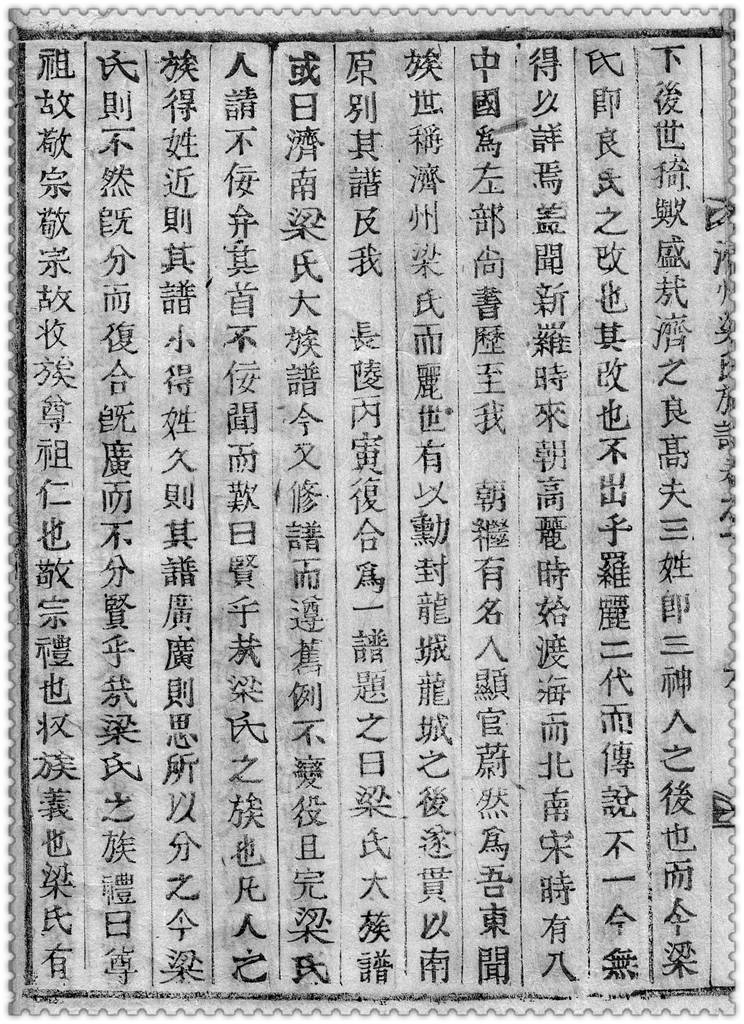 濟州梁氏族譜
下後世猗歟盛㢤濟之良髙夫三姓即三神人之後也而今梁
氏即良氏之改也其改也不出乎羅麗二代而傳說不一今無
得以詳焉盖聞新羅時來朝高麗時始渡海而北南宋時有入
中國爲左部尙書歷至我　朝繼有名人顯官蔚然爲吾東聞
族世稱濟州梁氏而麗世有以勳封龍城龍城之後遂貫以南
原別其譜及我　長陵丙寅復合爲一譜題之曰梁氏大族譜
或曰濟南梁氏大族譜今又修譜而遵舊例不變役且完梁氏
人請不佞弁其首不佞聞而歎曰賢乎㢤梁氏之族也凡人之
族得姓近則其譜小得姓久則其譜廣廣則思所以分之今梁
氏則不然旣分而復合旣廣而不分賢乎㢤梁氏之族禮曰尊
祖故敬宗敬宗故收族尊祖仁也敬宗禮也收族義也梁氏有